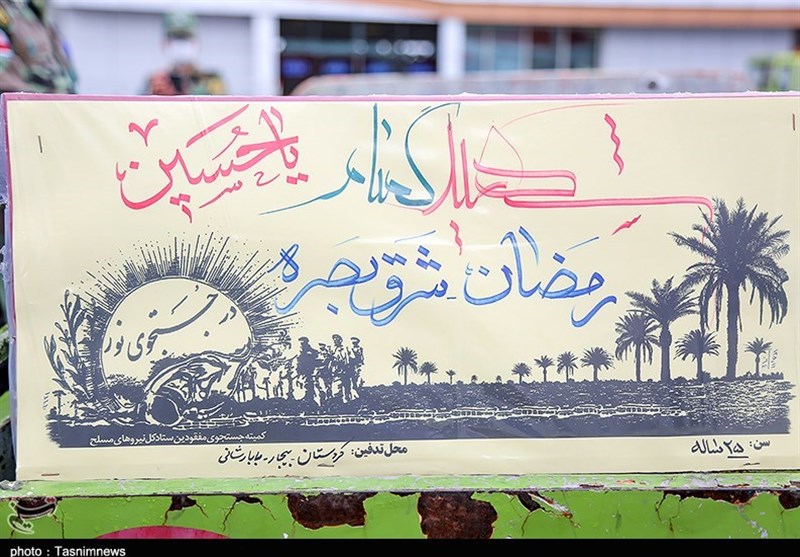 شهید گمنام یا حسین
رمضان شرق بصره
در جستجوی نور
کمیته جستجوی مفقودین ستاد کل نیروهای مسلح
محل تدفین: کردستان - بیجار -
سن: ۲۵ ساله
photo : Tasnimnews